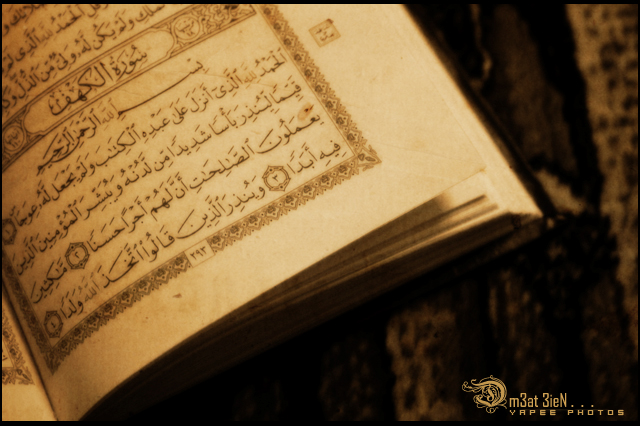 سُورَةُ الْكَهْفِ
بِسْمِ اللَّهِ الرَّحْمَٰنِ الرَّحِيمِ
الْحَمْدُ لِلَّهِ الَّذِي أَنزَلَ عَلَىٰ عَبْدِهِ الْكِتَابَ وَلَمْ يَجْعَل لَّهُ عِوَجًا ۝١
قَيِّمًا لِّيُنذِرَ بَأْسًا شَدِيدًا مِّن لَّدُنْهُ وَيُبَشِّرَ الْمُؤْمِنِينَ الَّذِينَ
يَعْمَلُونَ الصَّالِحَاتِ أَنَّ لَهُمْ أَجْرًا حَسَنًا ۝٢ مَّاكِثِينَ
فِيهِ أَبَدًا ۝٣ وَيُنذِرَ الَّذِينَ قَالُوا اتَّخَذَ اللَّهُ وَلَدًا ۝٤
٢٩٣
m3at 3ieN . . .
YAPEE PHOTOS